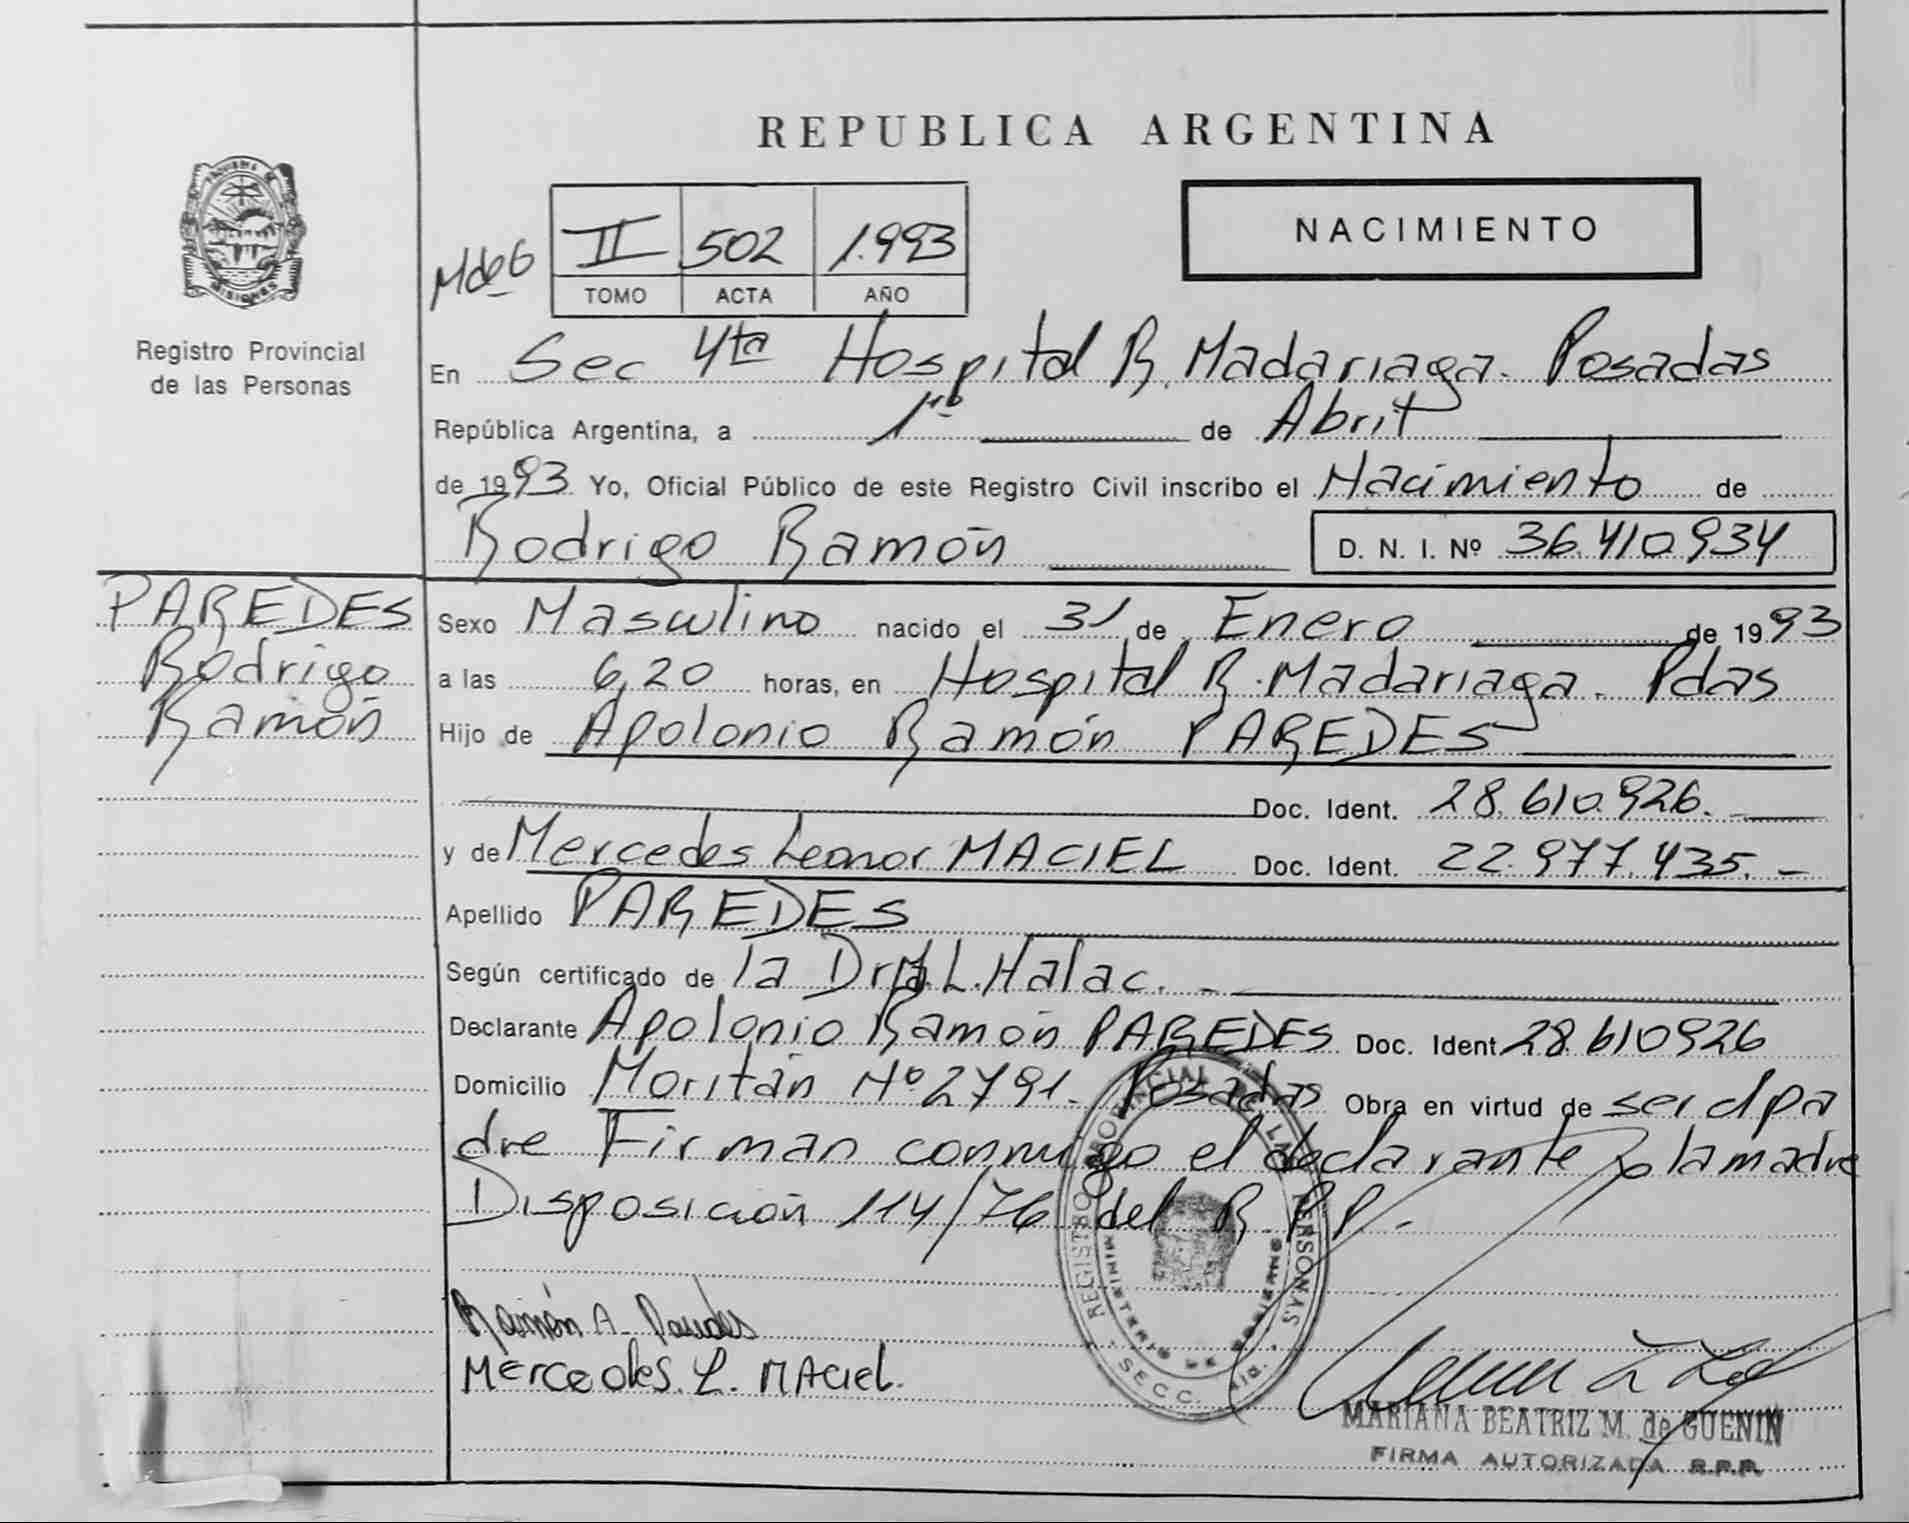 REPUBLICA ARGENTINA
MISIONES
Registro Provincial
de las Personas
MdeG
II 502 1.993
TOMO ACTA AÑO
NACIMIENTO
En Sec 4ta Hospital R. Madariaga. Posadas
República Argentina, a 1º de Abril
de 1993 Yo, Oficial Público de este Registro Civil inscribo el Nacimiento de
Rodrigo Ramón D. N. I. Nº 36.410.934
PAREDES
Rodrigo
Ramón
Sexo Masculino nacido el 31 de Enero de 1993
a las 6,20 horas, en Hospital R. Madariaga. Pdas
Hijo de Apolonio Ramón PAREDES
Doc. Ident. 28.610.926.
y de Mercedes Leonor MACIEL Doc. Ident. 22.977.435.-
Apellido PAREDES
Según certificado de la Dra M.L. Halac. -
Declarante Apolonio Ramón PAREDES Doc. Ident. 28.610926
Domicilio Moritán Nº 2791. Posadas Obra en virtud de ser el pa
dre Firman conmigo el declarante y la madre
Disposición 114/76 del R.P.P.-
REGISTRO PROVINCIAL DE LAS PERSONAS
MINISTERIO DE GOBIERNO
SECC.
Ramón A. Paredes
Mercedes. L. MAciel.
MARIANA BEATRIZ M. de GUENIN
FIRMA AUTORIZADA R.P.P.